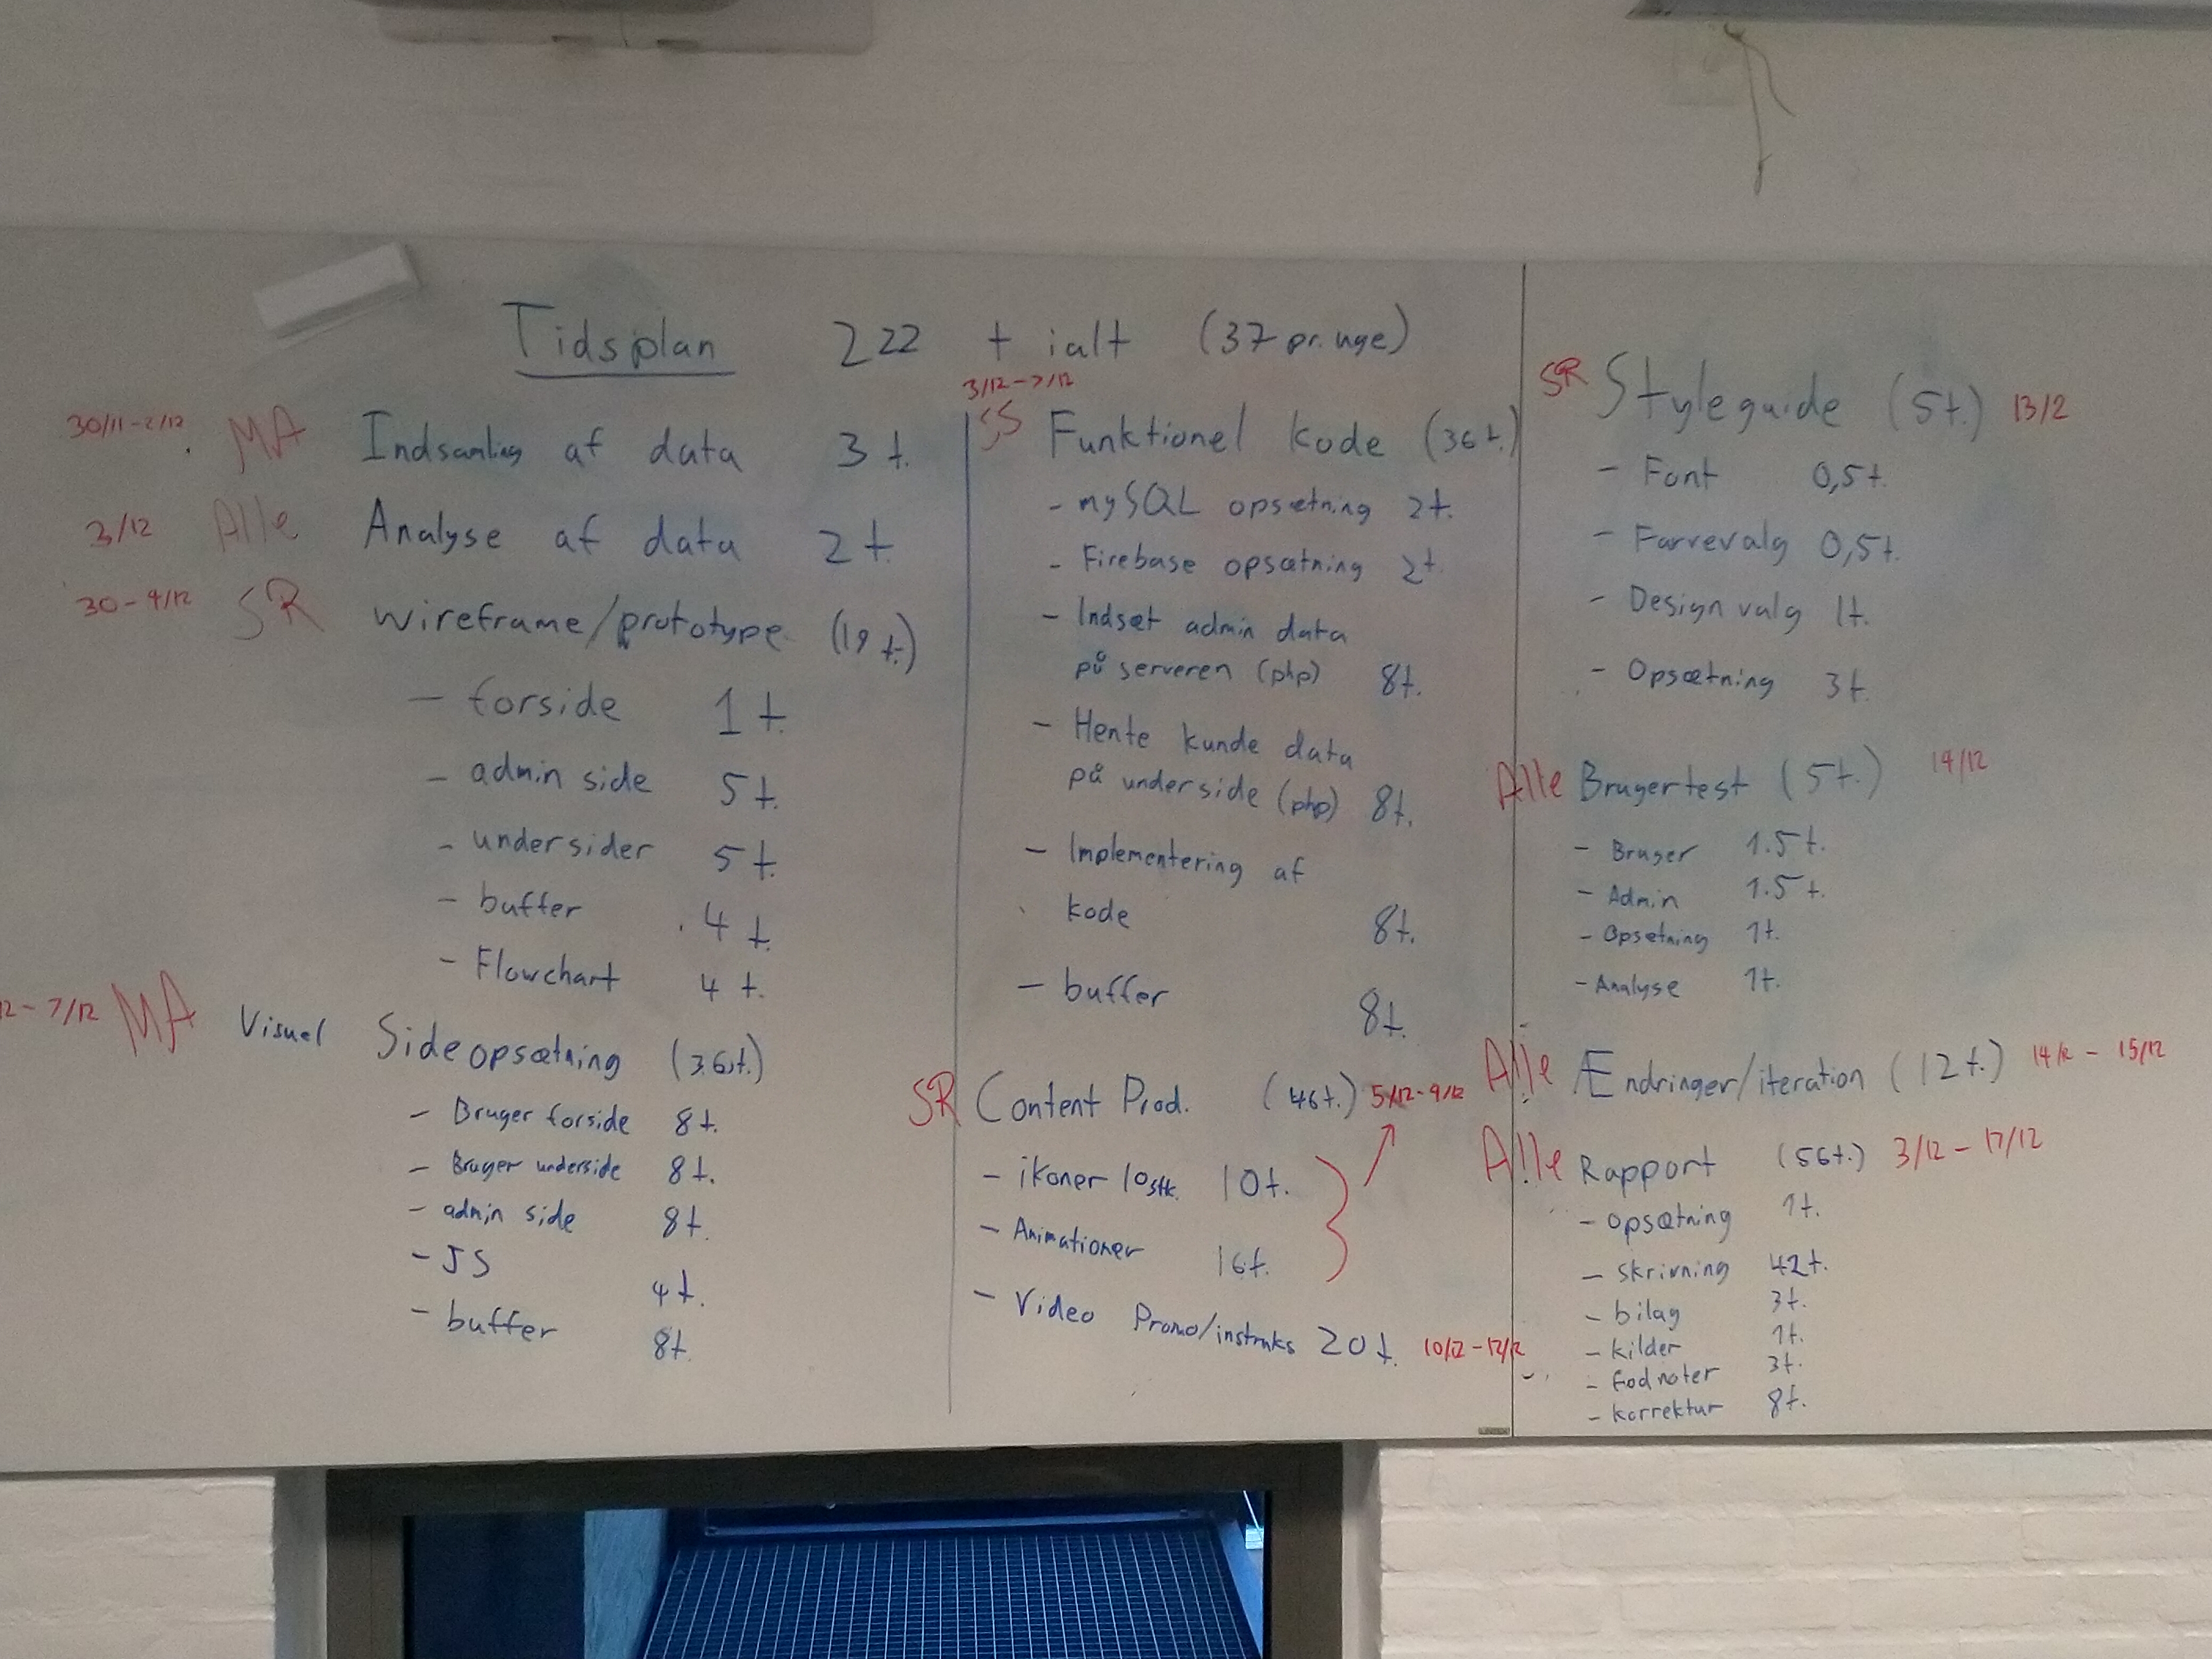 Tidsplan 222 t ialt (37 pr. uge)
30/11-2/12 MA Indsamling af data 3 t.
3/12 Alle Analyse af data 2 t.
30-4/12 SR wireframe/prototype (19 t.)
- forside 1 t.
- admin side 5 t.
- undersider 5 t.
- buffer 4 t.
- Flowchart 4 t.
12-7/12 MA Visuel Sideopsætning (36t.)
- Bruger forside 8t.
- Bruger underside 8t.
- admin side 8t.
- JS 4t.
- buffer 8t.
3/12-7/12
SS Funktionel kode (36t.)
- mySQL opsætning 2t.
- Firebase opsætning 2t.
- Indsæt admin data
på serveren (php) 8t.
- Hente kunde data
på underside (php) 8t.
- Implementering af
kode 8t.
- buffer 8t.
SR Content Prod. (46t.) 5/12-9/12
- ikoner 10stk. 10t.
- Animationer 16t.
- Video Promo/instruks 20t. 10/12-12/12
SR Styleguide (5t.) 13/2
- Font 0,5t.
- Farvevalg 0,5t.
- Design valg 1t.
- Opsætning 3t.
Alle Brugertest (5t.) 14/12
- Bruger 1.5t.
- Admin 1.5t.
- Opsætning 1t.
- Analyse 1t.
Alle Ændringer/iteration (12t.) 14/12 - 15/12
Alle Rapport (56t.) 3/12 - 17/12
- opsætning 1t.
- skrivning 42t.
- bilag 3t.
- kilder 1t.
- fodnoter 3t.
- korrektur 8t.